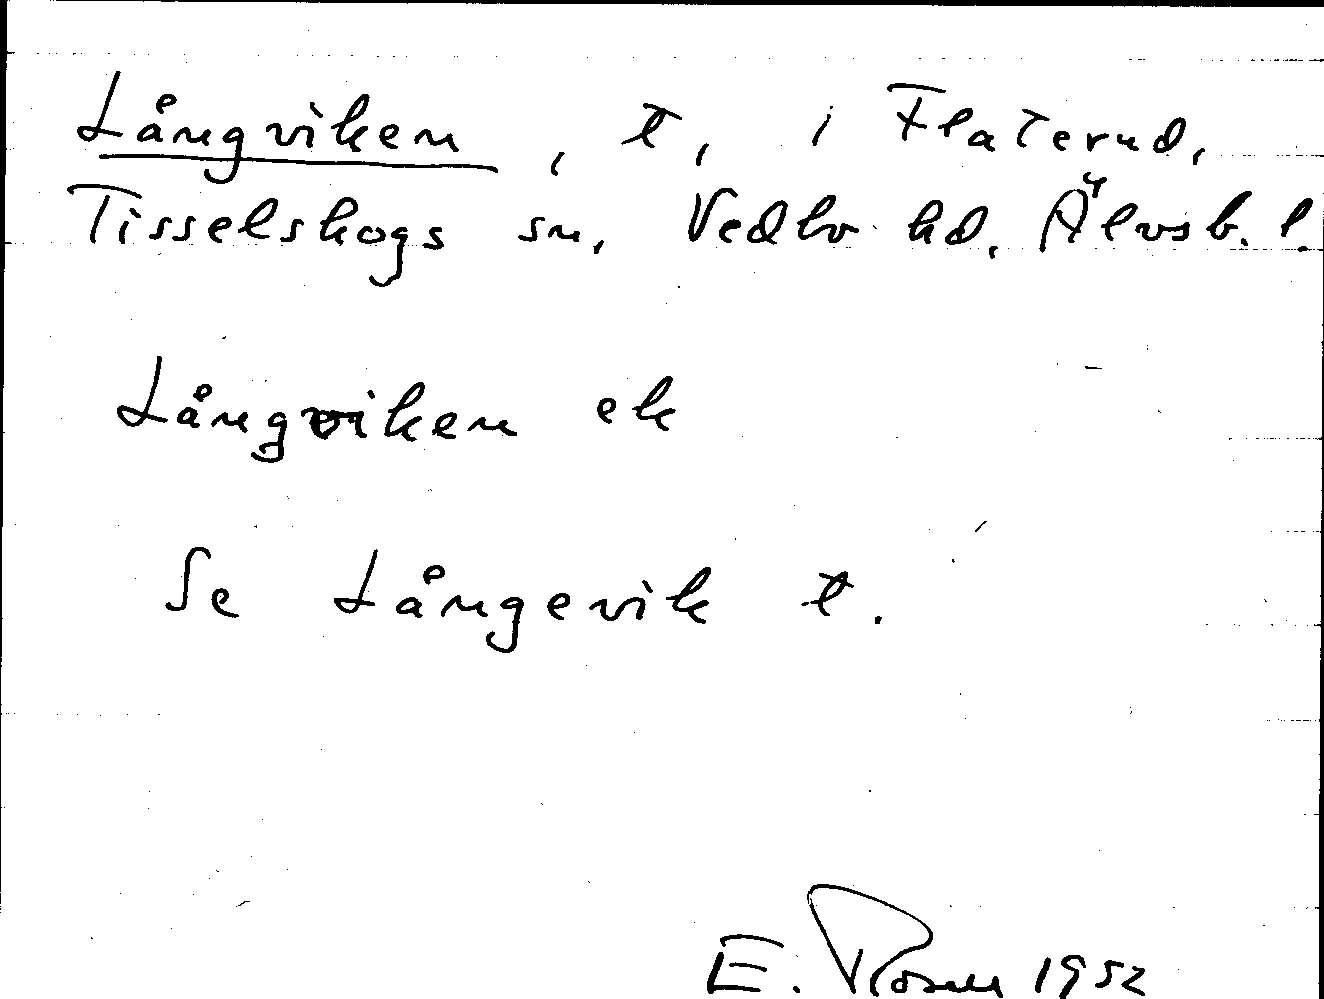 Långviken, t, i Flaterud,
Tisselskogs sn, Vedbo hd. Älvsb. l.
Långviken ek
Se Långevik t.
E. Rosell 1952